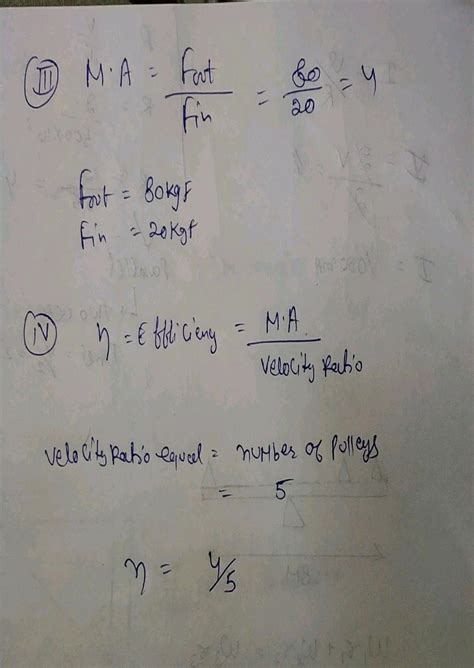 III M.A = Fout / Fin = 80 / 20 = 4
Fout = 80kgf
Fin = 20kgf
iv η = Efficieny = M.A. / Velocity Ratio
Velocity Ratio equal = number of Pulleys
= 5
η = 4/5